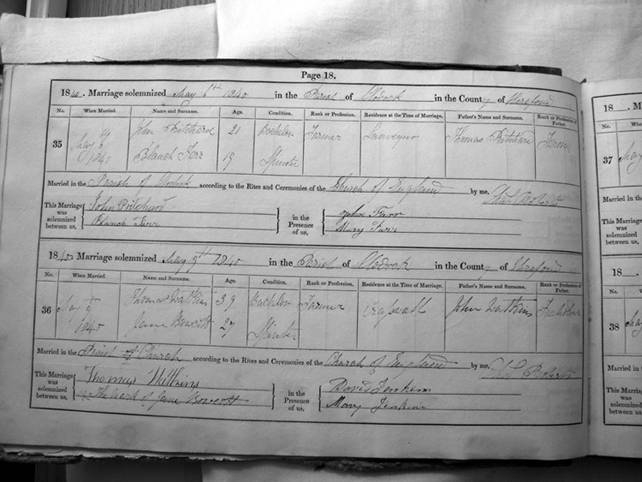 Page 18.
1840. Marriage solemnized May 6th 1840 in the Parish of Clodock in the County of Hereford
No. When Married. Name and Surname. Age. Condition. Rank or Profession. Residence at the Time of Marriage. Father's Name and Surname. Rank or Profession of Father.
35 May 6th John Pritchard 21 Bachelor Farmer Thomas Pritchard Farmer
1840 Blanch Farr 19 Minor
Married in the Parish of Clodock according to the Rites and Ceremonies of the Church of England by me,
This Marriage was solemnized between us, John Pritchard in the Presence of us, John Farr
Blanch Farr Mary Farr
1840 Marriage solemnized May 9th 1840 in the Parish of Clodock in the County of Hereford
No. When Married. Name and Surname. Age. Condition. Rank or Profession. Residence at the Time of Marriage. Father's Name and Surname. Rank or Profession of Father.
36 May 9th Thomas Watkins 39 Bachelor Farmer John Watkins
1840 Jane 27
Married in the Parish Church according to the Rites and Ceremonies of the Church of England by me,
This Marriage was solemnized between us, Thomas Watkins in the Presence of us, David Jenkins
The mark of Jane Mary Jenkins
18
No.
37
18
No.
38